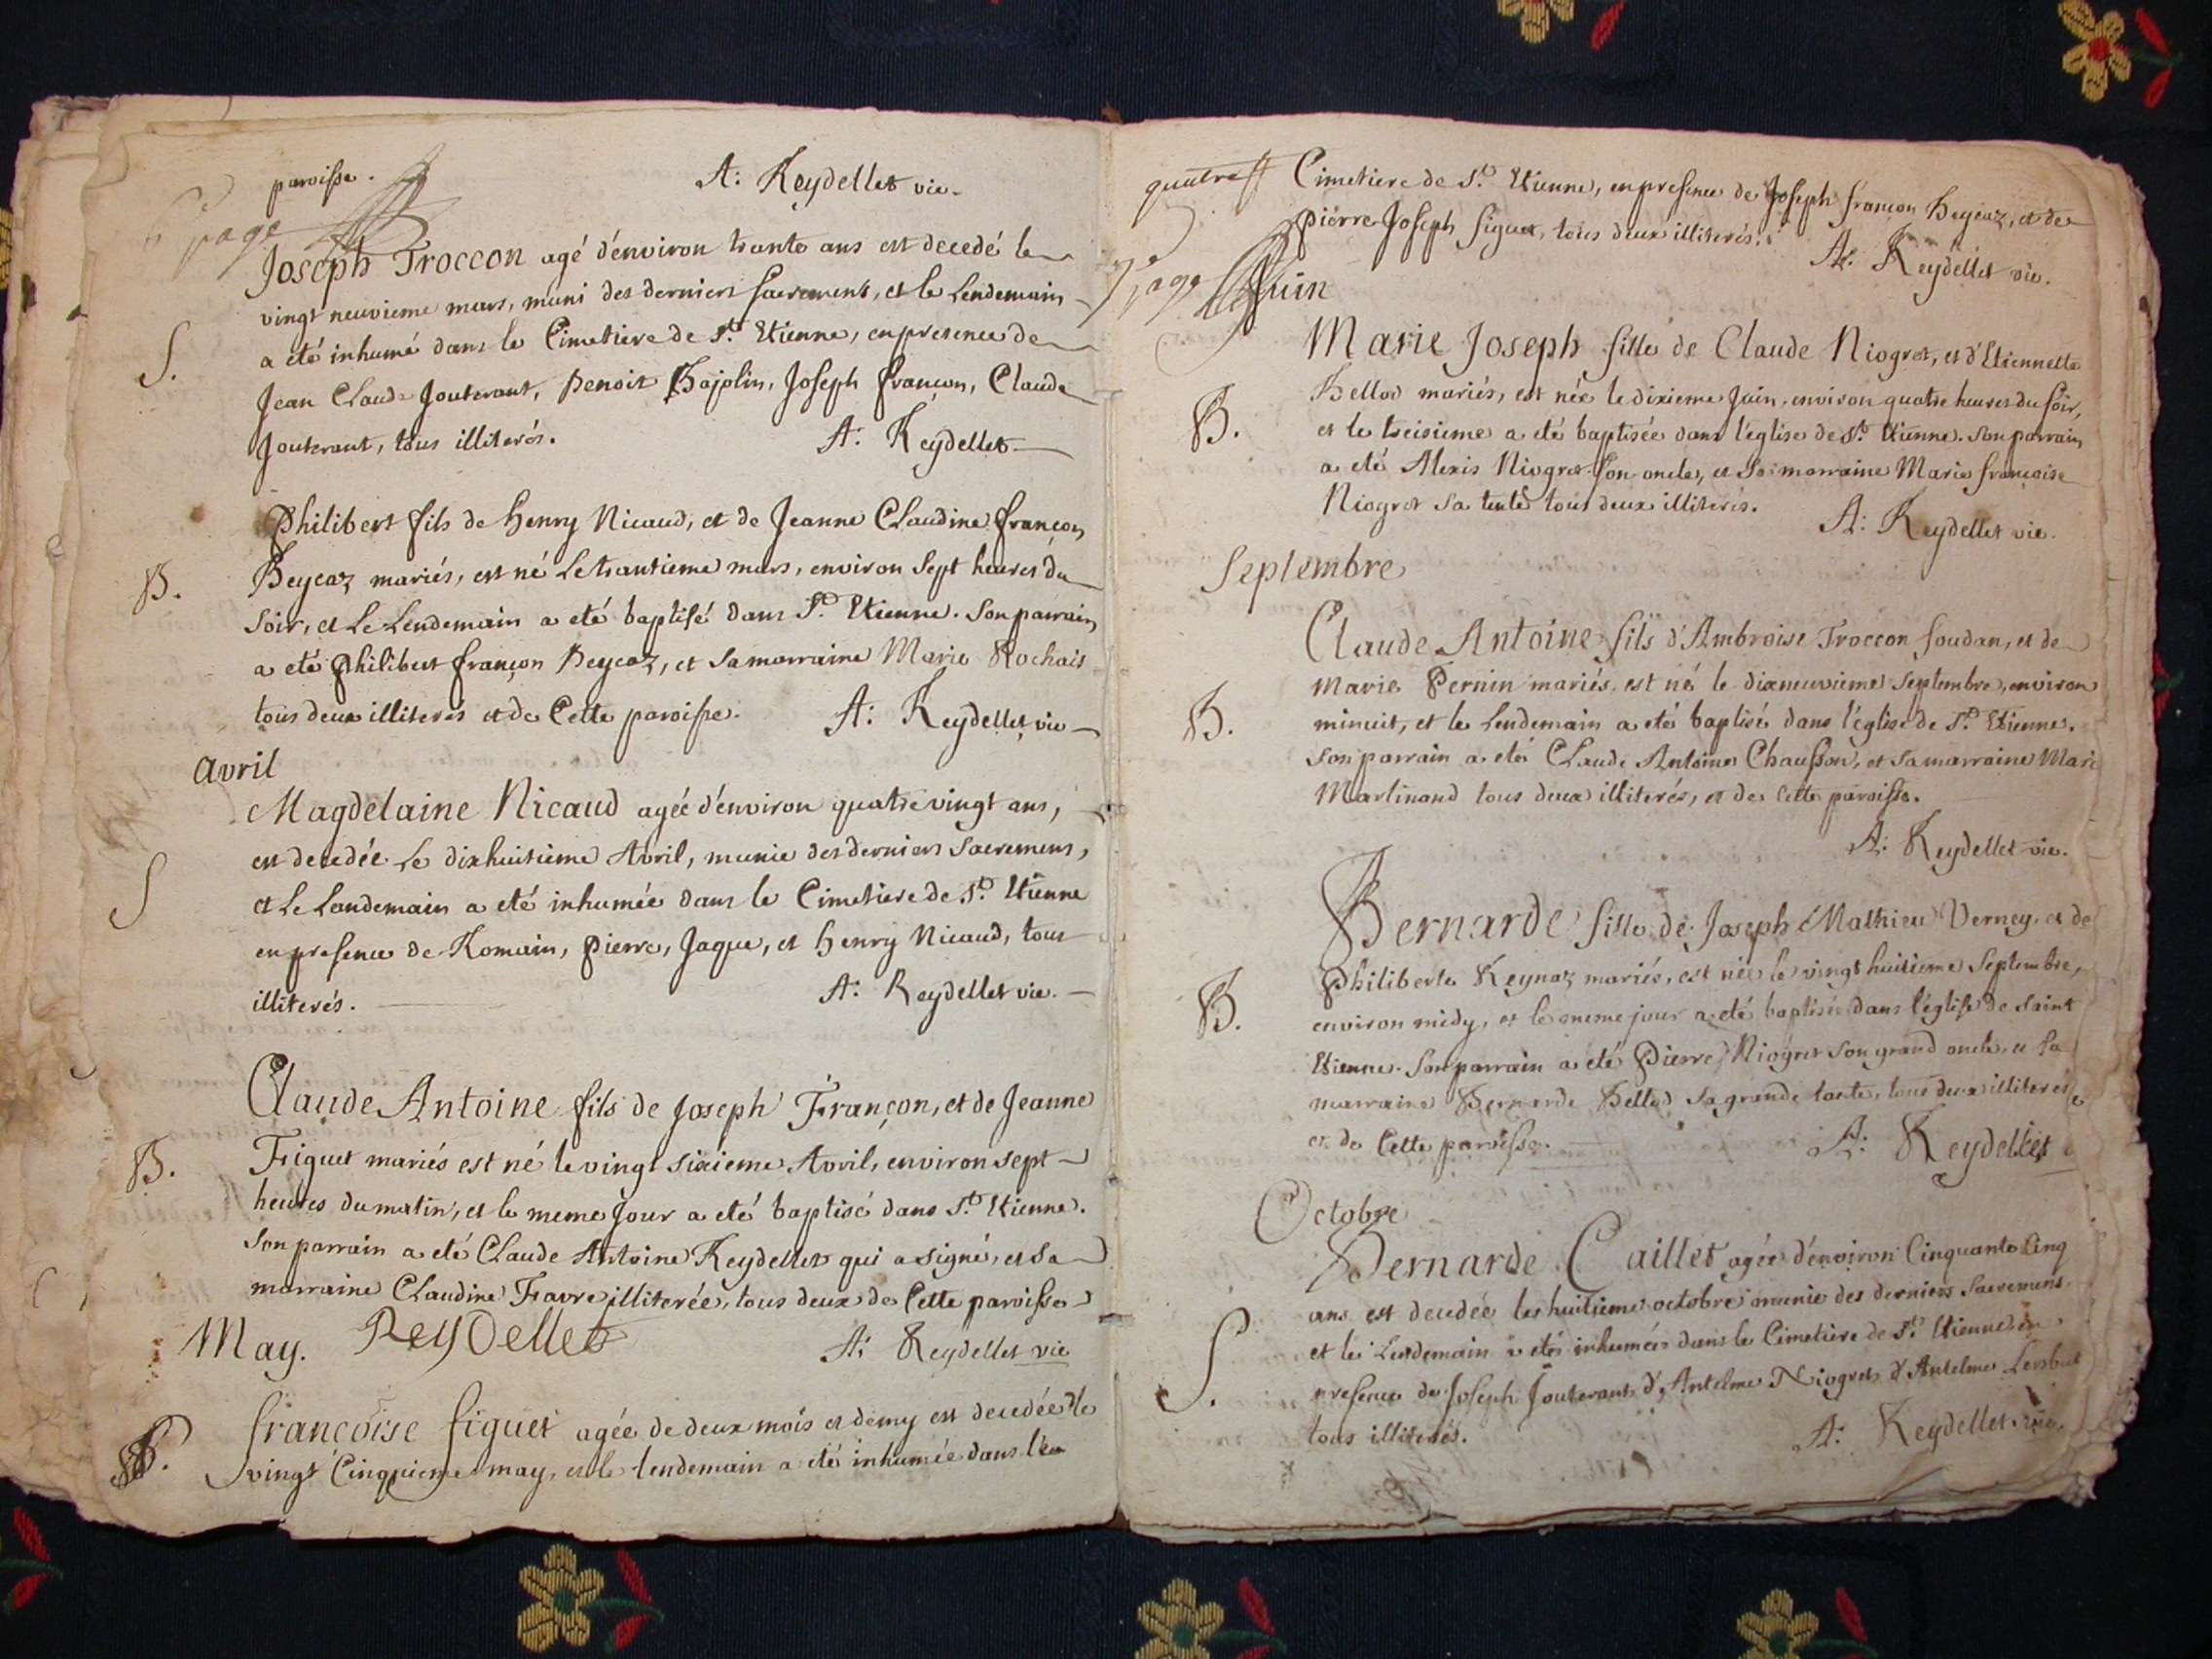 paroisse. A: Reydellet vic.
6e page
Joseph Troccon agé d'environ trante ans est decedé le
vingt neuvieme mars, muni des derniers sacremens, et le Lendemain
S. a eté inhumé dans le Cimetiere de St. Etienne, en presence de
Jean Claude Jouterant, Benoit Bajolin, Joseph françon, Claude
Jouterant, tous illiterés. A: Reydellet
Philibert fils de Henry Nicaud, et de Jeanne Claudine françon
B. Beycaz mariés, est né Le trantieme mars, environ Sept heures du
Soir, et Le Lendemain a eté baptisé dans St. Etienne. Son parrain
a eté philibert françon Beycaz, et sa marraine Marie Rochais
tous deux illiterés et de Cette paroisse. A: Reydellet vic
avril
Magdelaine Nicaud agée d'environ quatre vingt ans,
est decedée Le dixhuitieme Avril, munie des derniers Sacremens,
S et Le Landemain a eté inhumée dans le Cimetiere de St. Etienne
en presence de Romain, pierre, Jaque, et henry Nicaud, tous
illiterés. A: Reydellet vic.
Claude Antoine fils de Joseph Françon, et de Jeanne
B. Figuet mariés est né le vingt sixieme Avril, environ sept
heures du matin, et le meme Jour a eté baptisé dans St. Etienne.
Son parrain a eté Claude Antoine Reydellet qui a signé, et sa
marraine Claudine Favre illiterée, tous deux de Cette paroisse
May. Reydellet A: Reydellet vic
françoise figuet agée de deux mois et demy est decedée le
S. vingt Cinqieme may, et le lendemain a eté inhumée dans le
quatre Cimetiere de St. Etienne, en presence de Joseph françon Beycaz, et de
pierre Joseph figuet, tous deux illiterés. A: Reydellet vic.
7e page
Juin
Marie Joseph fille de Claude Niogret, et d'Etiennette
B. Bellod mariés, est née le dixieme Juin, environ quatre heures du soir,
et le treisieme a eté baptisée dans l'eglise de St. Etienne. Son parrain
a eté Alexis Niogret son oncle, et sa marraine Marie françoise
Niogret sa tente tous deux illiterés. A: Reydellet vic.
Septembre
Claude Antoine fils d'Ambroise Troccon soudan, et de
Marie Pernin mariés, est né le dixneuvieme Septembre, environ
B. minuit, et le Lendemain a eté baptisé dans l'église de St. Etienne.
son parrain a eté Claude Antoine Chausson, et sa marraine Marie
Martinand tous deux illiterés, et de Cette paroisse.
A: Reydellet vic.
Bernarde fille de Joseph Mathieu Verney et de
Philiberte Reynaz mariés, est née le vingt huitieme Septembre,
B. environ midy, et le meme jour a eté baptisée dans l'église de Saint
Etienne. Son parrain a eté Pierre Niogret son grand oncle, et sa
marraine Bernarde Bellod sa grande tante, tous deux illiterés,
et de Cette paroisse. A: Reydellet
Octobre
Bernarde Caillet agée d'environ Cinquante Cinq
ans est decedée le huitieme octobre munie des derniers Sacremens
et le Lendemain a eté inhumée dans le Cimetiere de St. Etienne en
S. presence de Joseph Jouterant, d'Antelme Niogret, d'Antelme
tous illiterés. A: Reydellet vic.